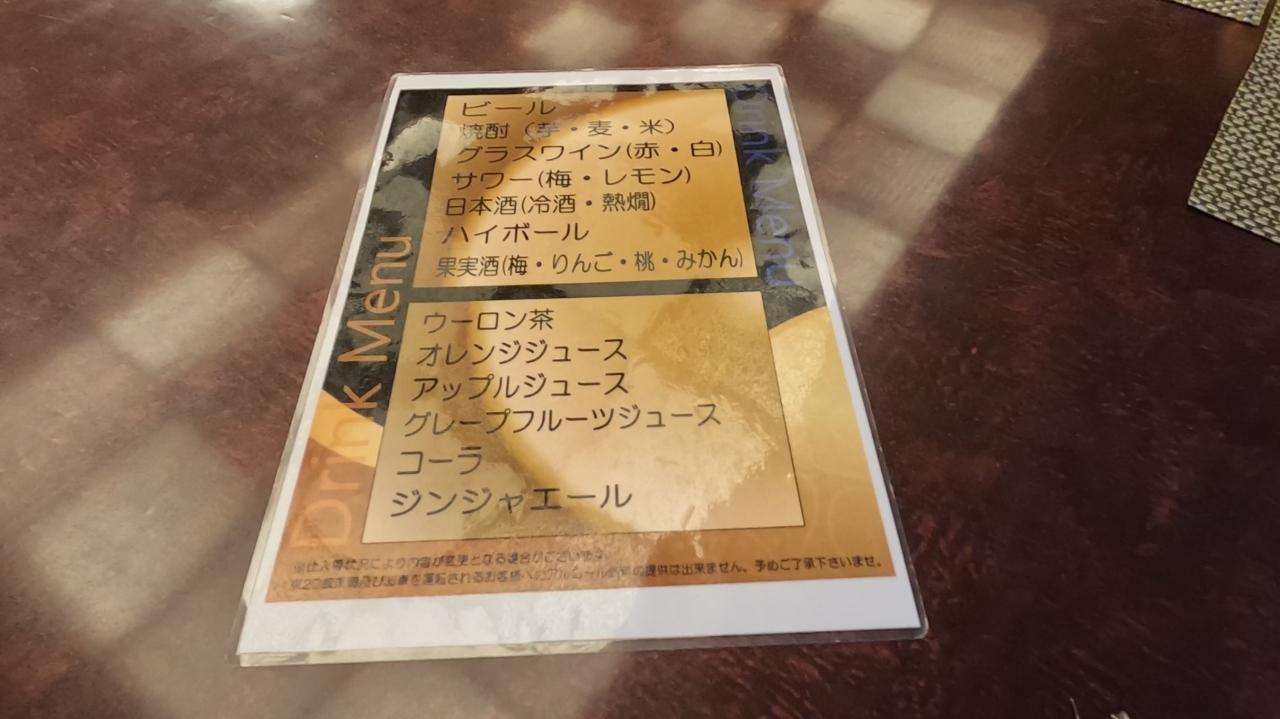 Drink Menu
ビール
焼酎（芋・麦・米）
グラスワイン(赤・白)
サワー(梅・レモン)
日本酒(冷酒・熱燗)
ハイボール
果実酒(梅・りんご・桃・みかん)
Drink Menu
ウーロン茶
オレンジジュース
アップルジュース
グレープフルーツジュース
コーラ
ジンジャエール
※仕入等状況により内容が変更となる場合がございます。
※20歳未満及びお車を運転されるお客様へのアルコール飲料の提供は出来ません。予めご了承下さいませ。